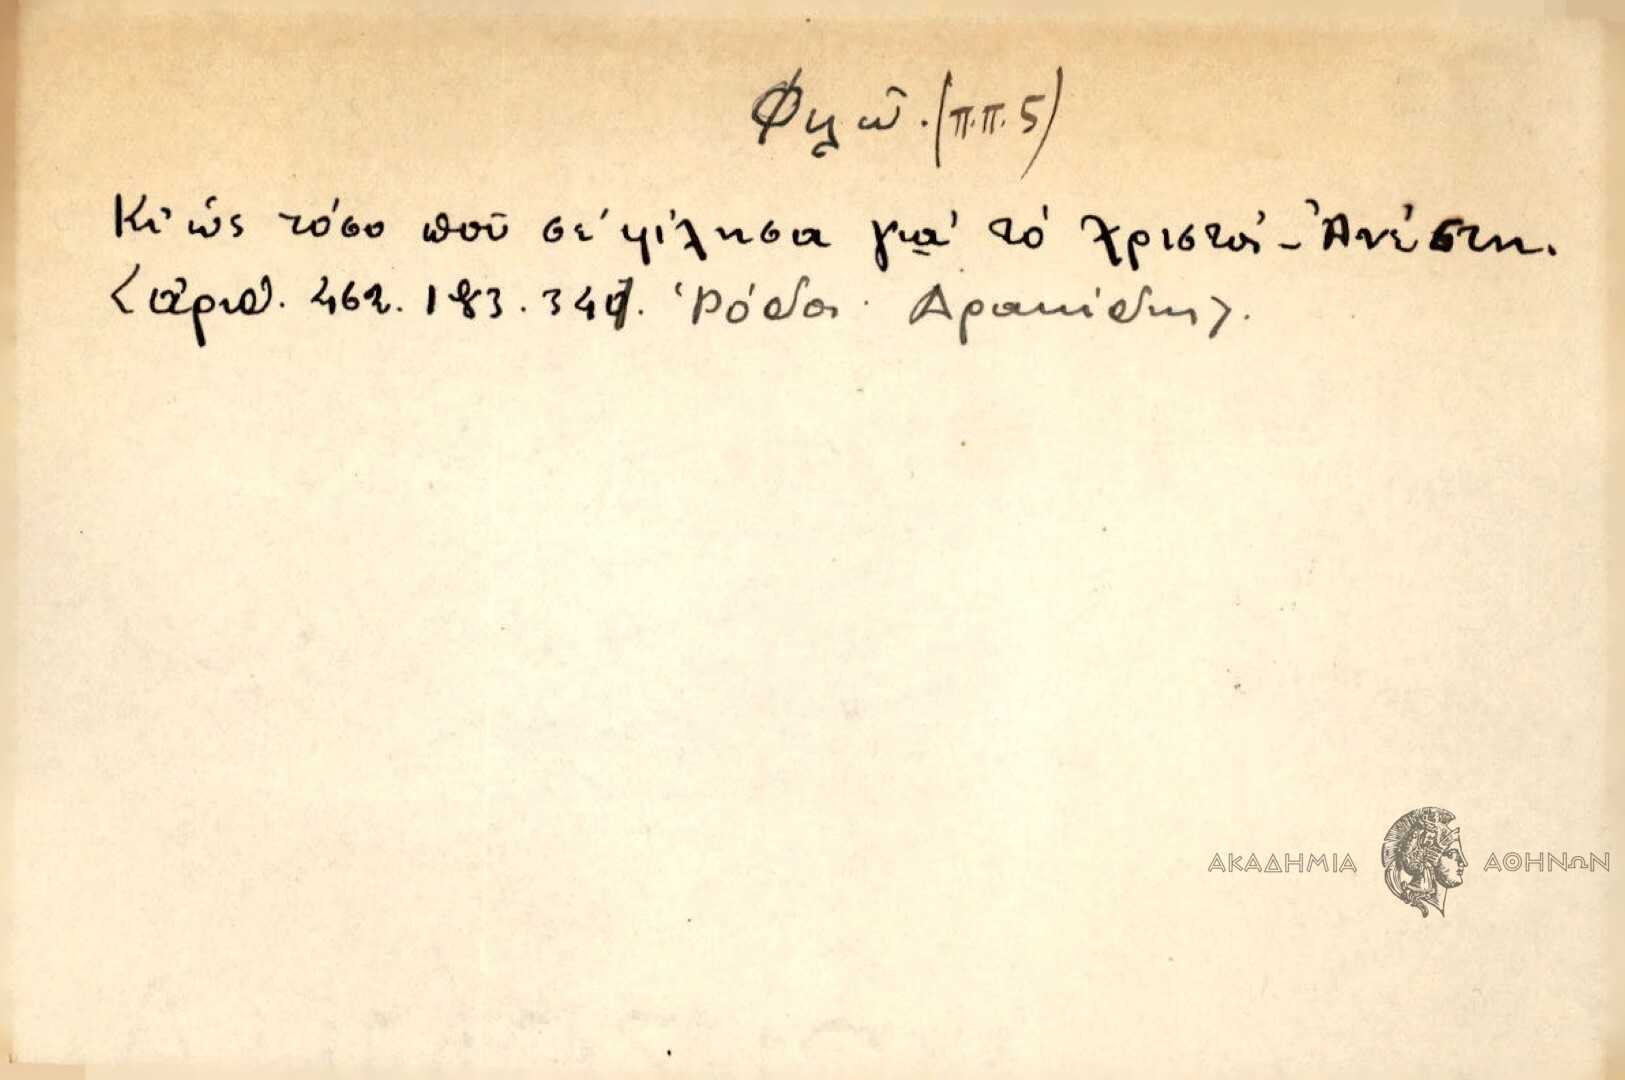 Φιλῶ. (π.π. 5)
Κι' ὡς τόσο ποῦ σέ φίλησα γιά τό Χριστός-Ἀνέστη.
<ἀριθ. 462. 183. 347. Ῥόδος. Δρακίδης>.
ΑΚΑΔΗΜΙΑ ΑΘΗΝΩΝ